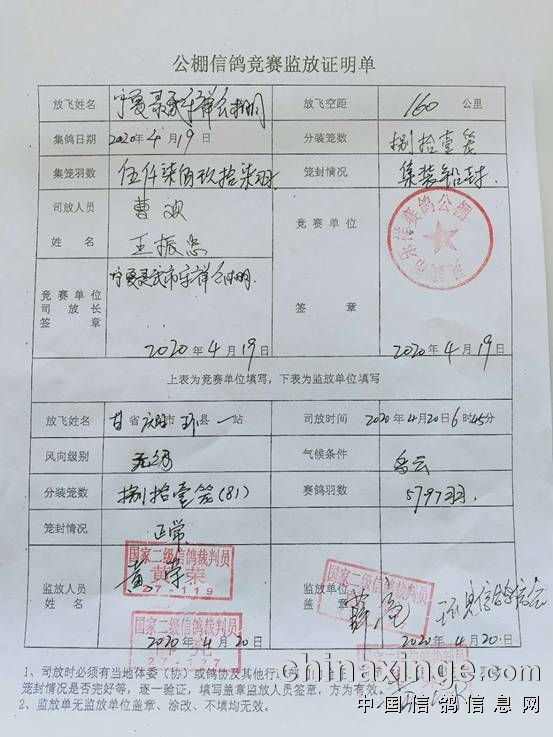 公棚信鸽竞赛监放证明单
放飞姓名 放飞空距 160 公里
集鸽日期 2020年4月19日 分装笼数 捌拾壹笼
集笼羽数 伍仟柒佰玖拾柒羽 笼封情况 集装车铅封
司放人员 曹波 竞赛单位
姓名 王振忠
竞赛单位 宁夏灵武市乐祥公棚 签章
司放长
签章
2020年4月19日 2020年4月19日
上表为竞赛单位填写,下表为监放单位填写
放飞姓名 甘省庆阳市环县一站 司放时间 2020年4月20日6时45分
风向级别 无级 气候条件 多云
分装笼数 捌拾壹笼(81) 赛鸽羽数 5797羽
笼封情况 正常
监放人员 黄荣 监放单位
姓名 盖章
国家二级信鸽裁判员
黄荣
27-119
国家二级信鸽裁判员
2020年4月20日 2020年4月20日
1、司放时必须有当地体委(协)或鸽协及其他行政
笼封情况是否完好等,逐一验证,填写盖章监放人员签章,方为有效。
2、监放单无监放单位盖章、涂改、不填均无效。
chinaxinge.com
中国信鸽信息网